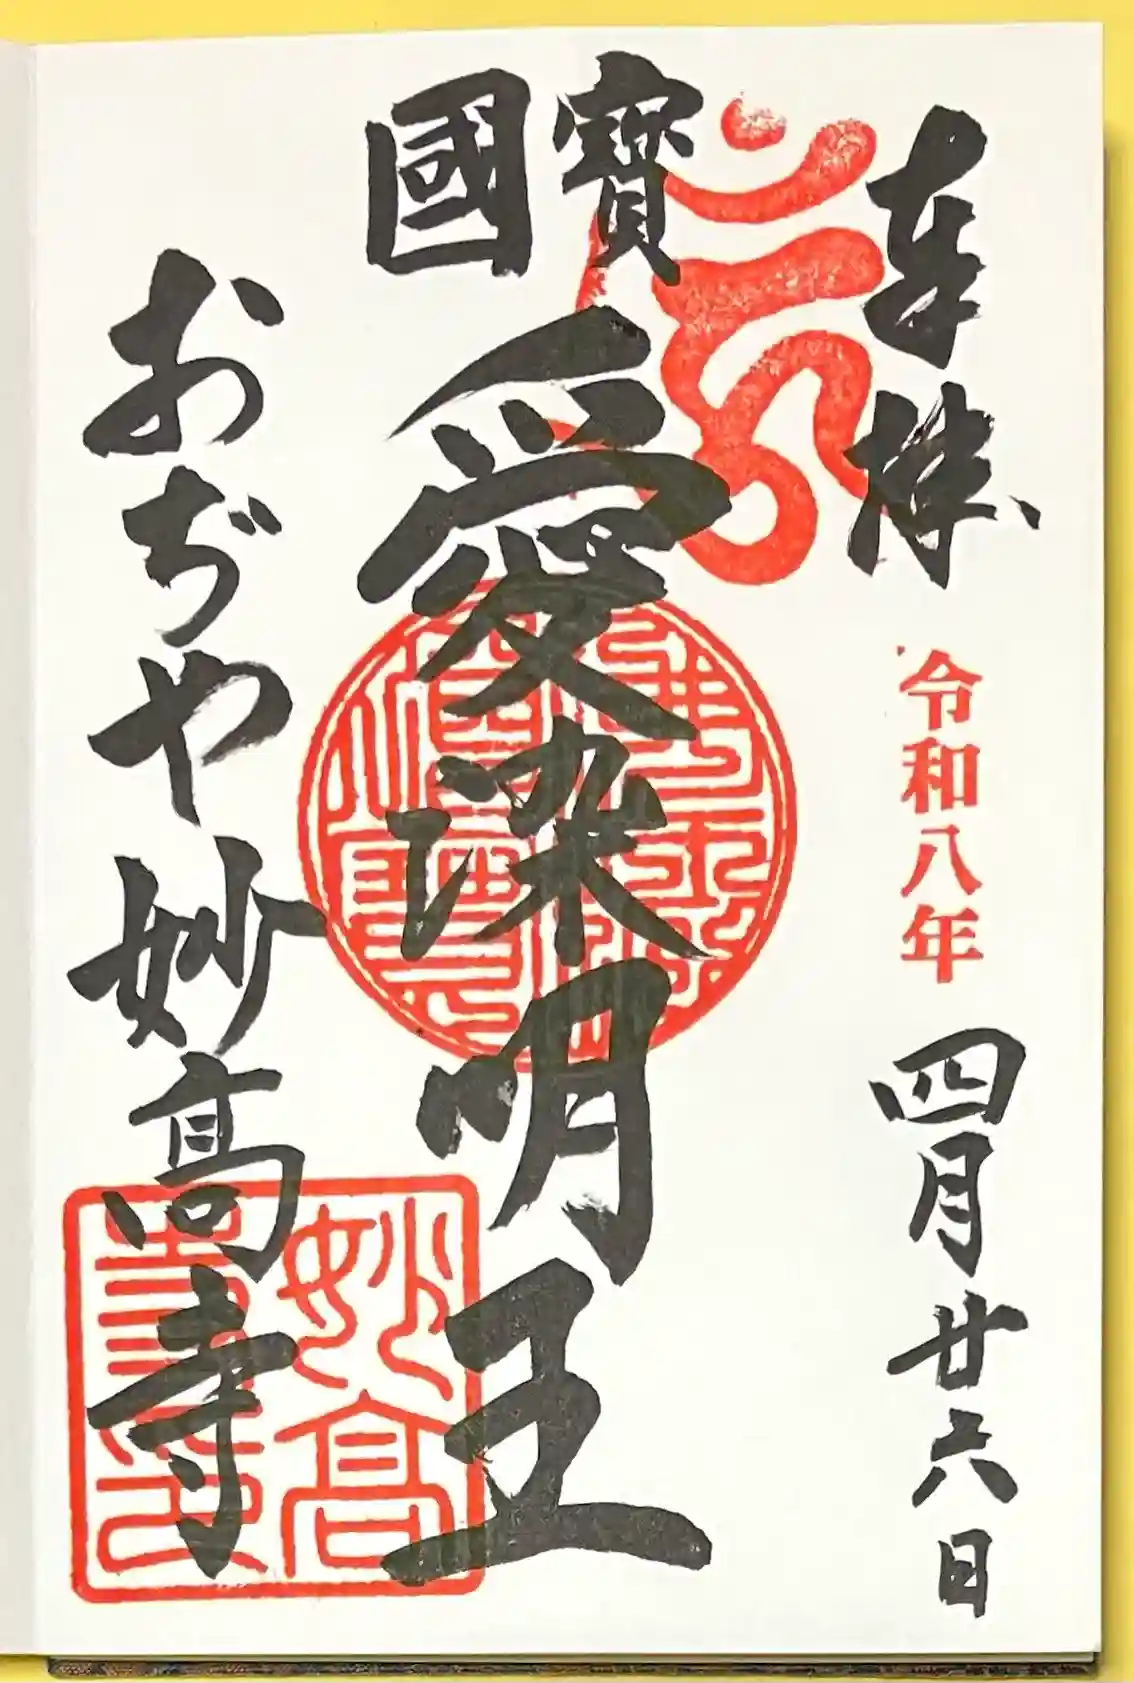 奉拝 令和八年 四月廿六日
國寶
愛染明王
おぢや 妙高寺
妙高寺印